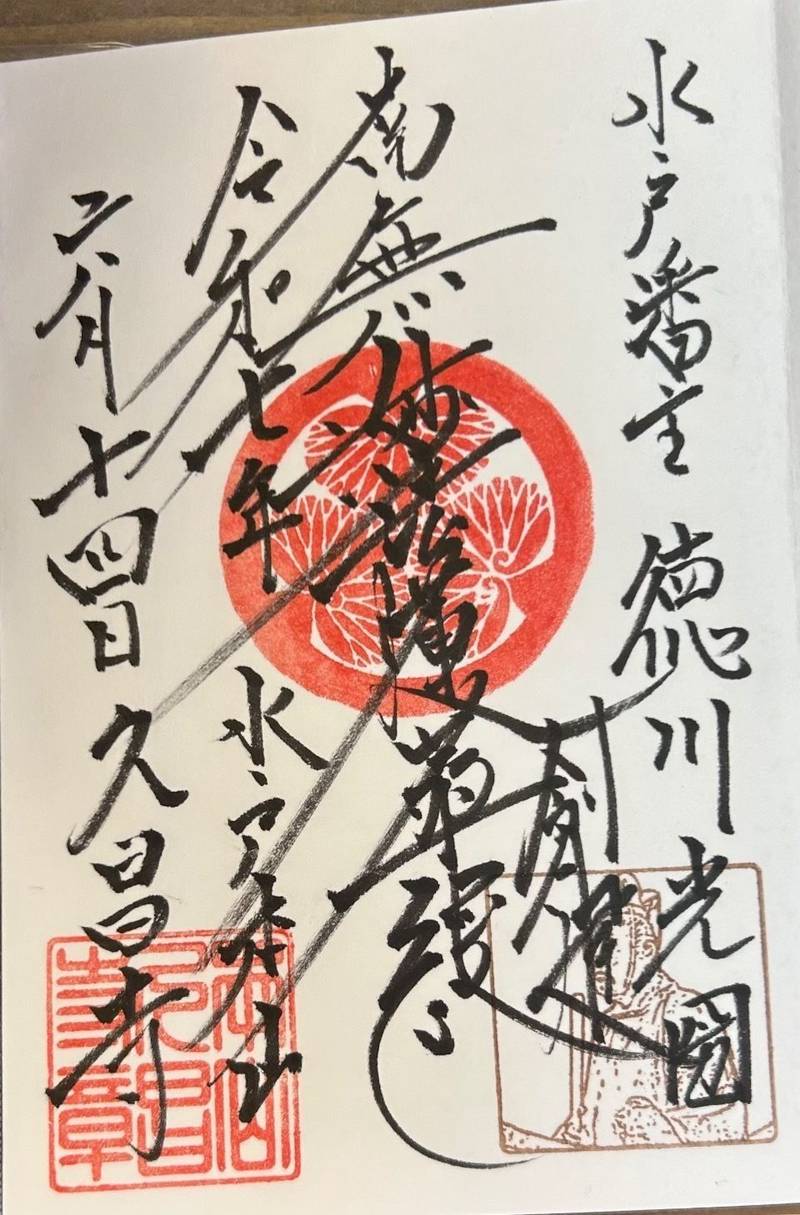 水戸藩主 徳川光圀
創建
南無妙法蓮華経
令和七年 水戸本山
二月十四日 久昌寺